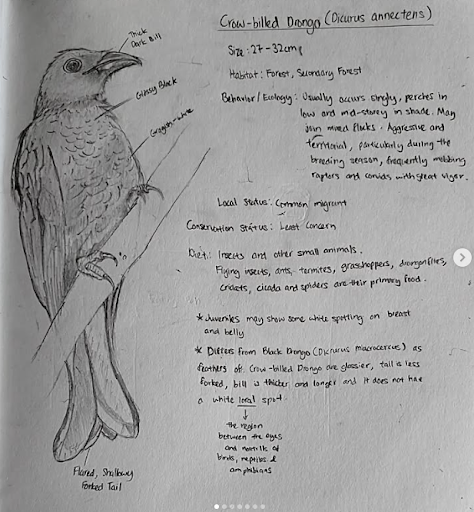 Crow-billed Drongo (Dicurus annectens)
Size: 27-32cm
Habitat: Forest, Secondary Forest
Behavior/Ecology: Usually occurs singly, perches in
low and mid-storey in shade. May
join mixed flocks. Aggressive and
territorial, particularly during the
breeding season, frequently mobbing
raptors and corvids with great vigor.
Local Status: Common migrant
Conservation Status: Least Concern
Diet: Insects and other small animals.
Flying insects, ants, termites, grasshoppers, dragonflies,
crickets, cicada and spiders are their primary food.
* Juveniles may show some white spotting on breast
and belly
* Differs from Black Drongo (Dicrurus macrocercus) as
feathers of Crow-billed Drongo are glossier, tail is less
forked, bill is thicker and longer and it does not have
a white loral spot.
the region
between the eyes
and nostrils of
birds, reptiles &
amphibians
Thick
Dark Bill
Glossy Black
Grayish-white
Flared, Shallowy
Forked Tail